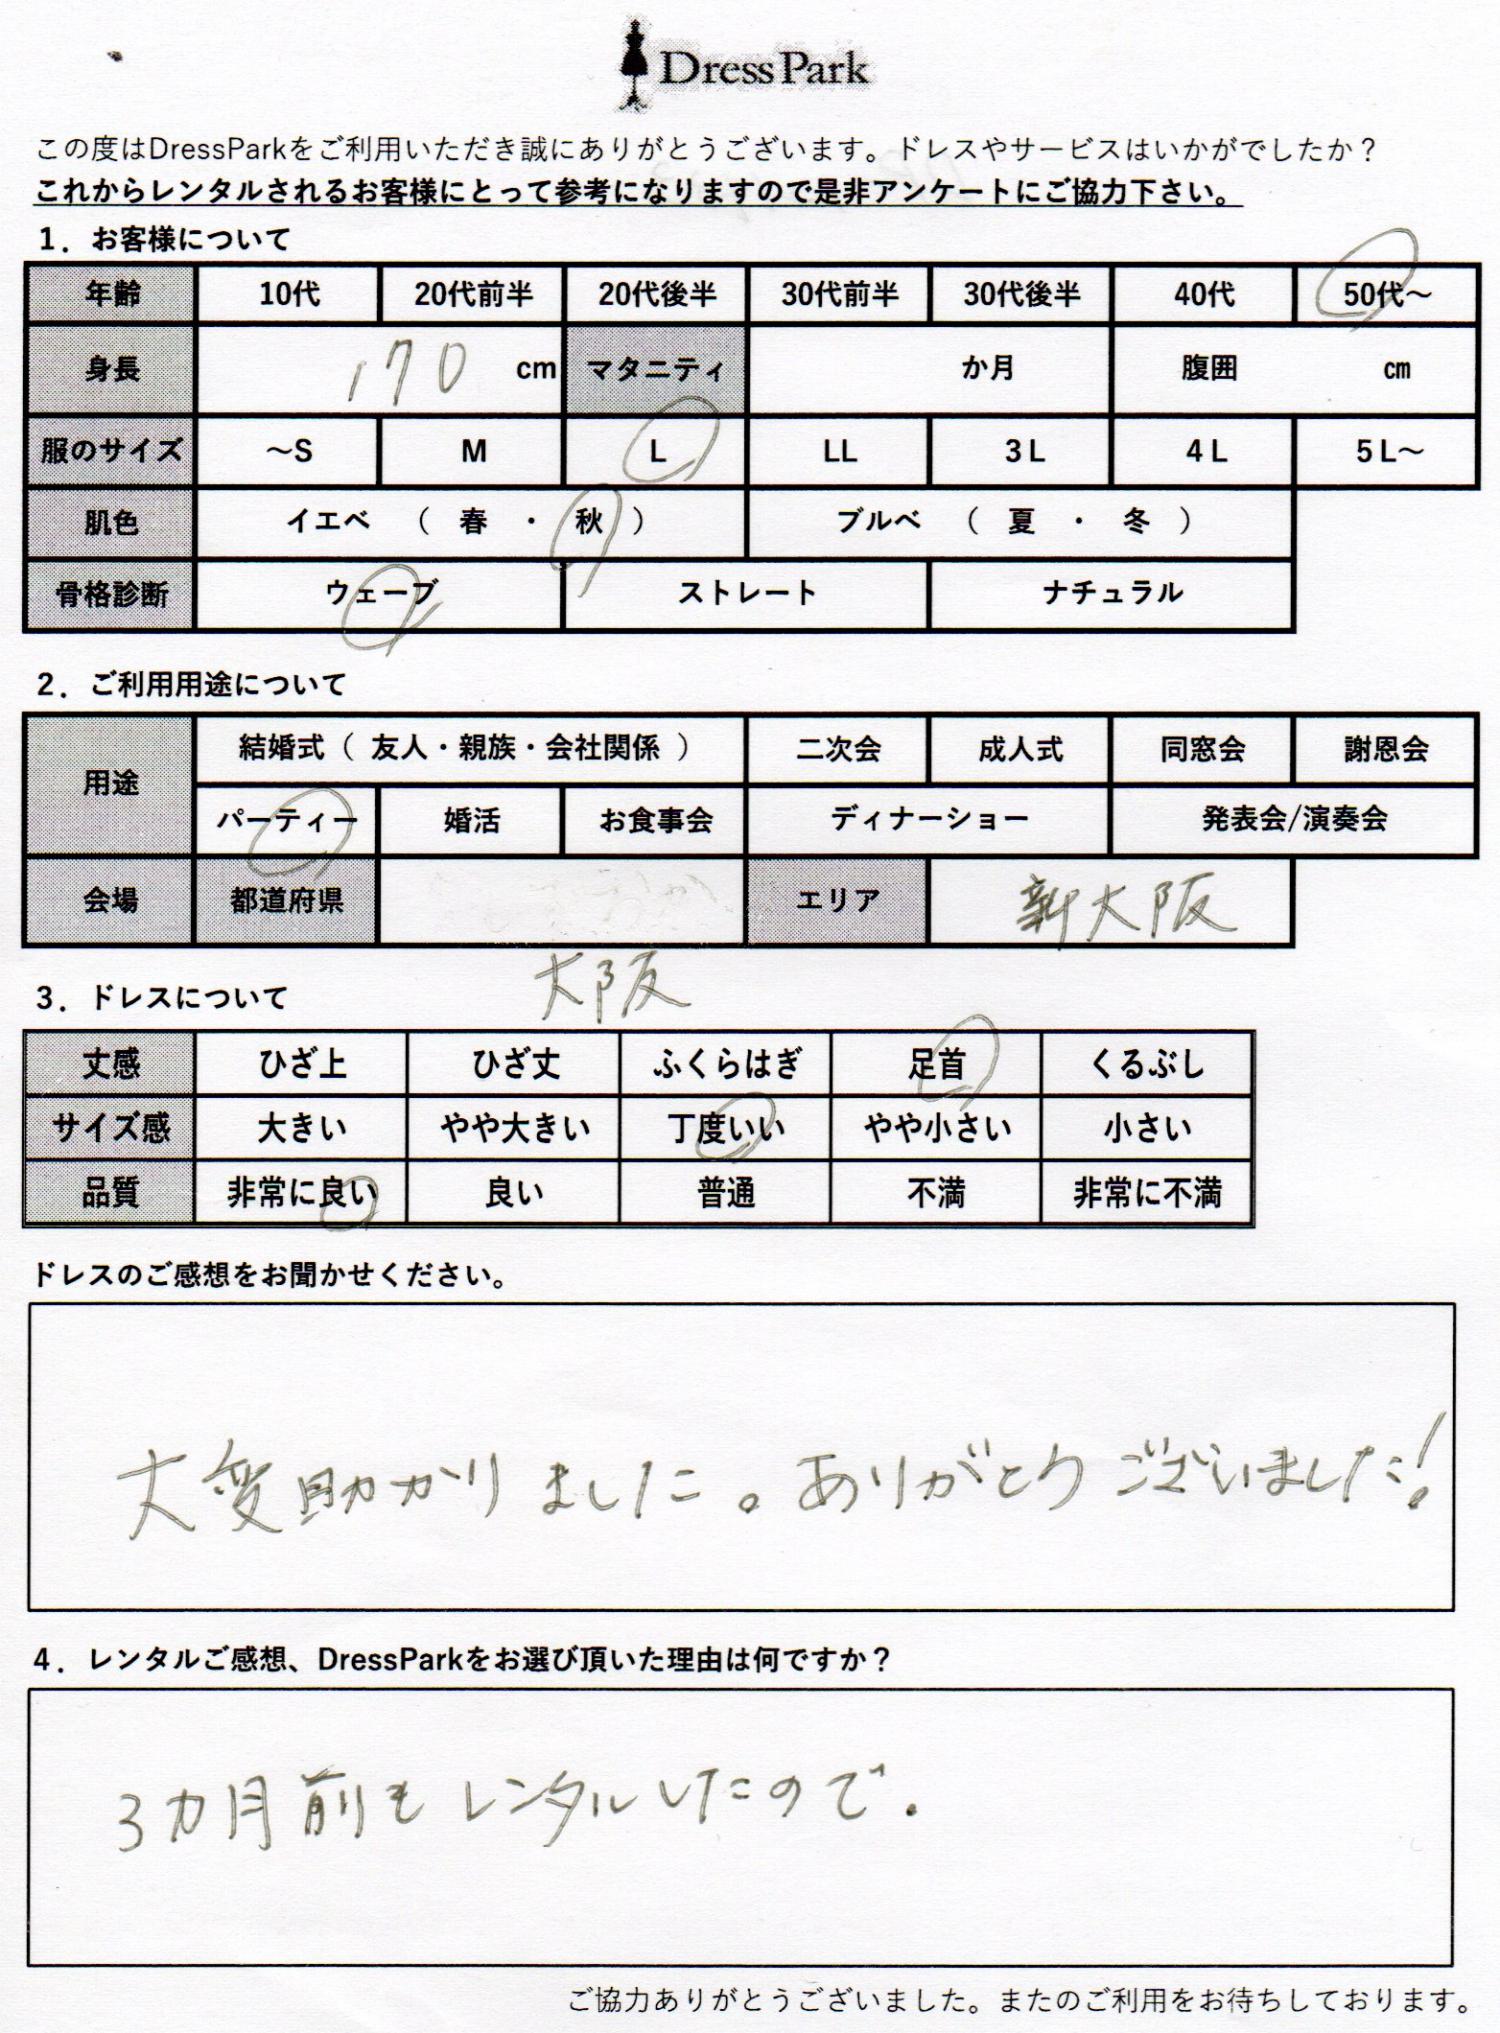 DressPark
この度はDressParkをご利用いただき誠にありがとうございます。ドレスやサービスはいかがでしたか？
これからレンタルされるお客様にとって参考になりますので是非アンケートにご協力下さい。
1．お客様について
年齢 10代 20代前半 20代後半 30代前半 30代後半 40代 50代～
身長 170 cm マタニティ か月 腹囲 ㎝
服のサイズ ～S M L LL 3L 4L 5L～
肌色 イエベ （ 春 ・ 秋 ） ブルベ （ 夏 ・ 冬 ）
骨格診断 ウェーブ ストレート ナチュラル
2．ご利用用途について
用途 結婚式（ 友人・親族・会社関係 ） 二次会 成人式 同窓会 謝恩会
パーティー 婚活 お食事会 ディナーショー 発表会/演奏会
会場 都道府県 エリア 新大阪
大阪
3．ドレスについて
丈感 ひざ上 ひざ丈 ふくらはぎ 足首 くるぶし
サイズ感 大きい やや大きい 丁度いい やや小さい 小さい
品質 非常に良い 良い 普通 不満 非常に不満
ドレスのご感想をお聞かせください。
大変助かりました。ありがとうございました!
4．レンタルご感想、DressParkをお選び頂いた理由は何ですか？
3カ月前もレンタルしたので.
ご協力ありがとうございました。またのご利用をお待ちしております。